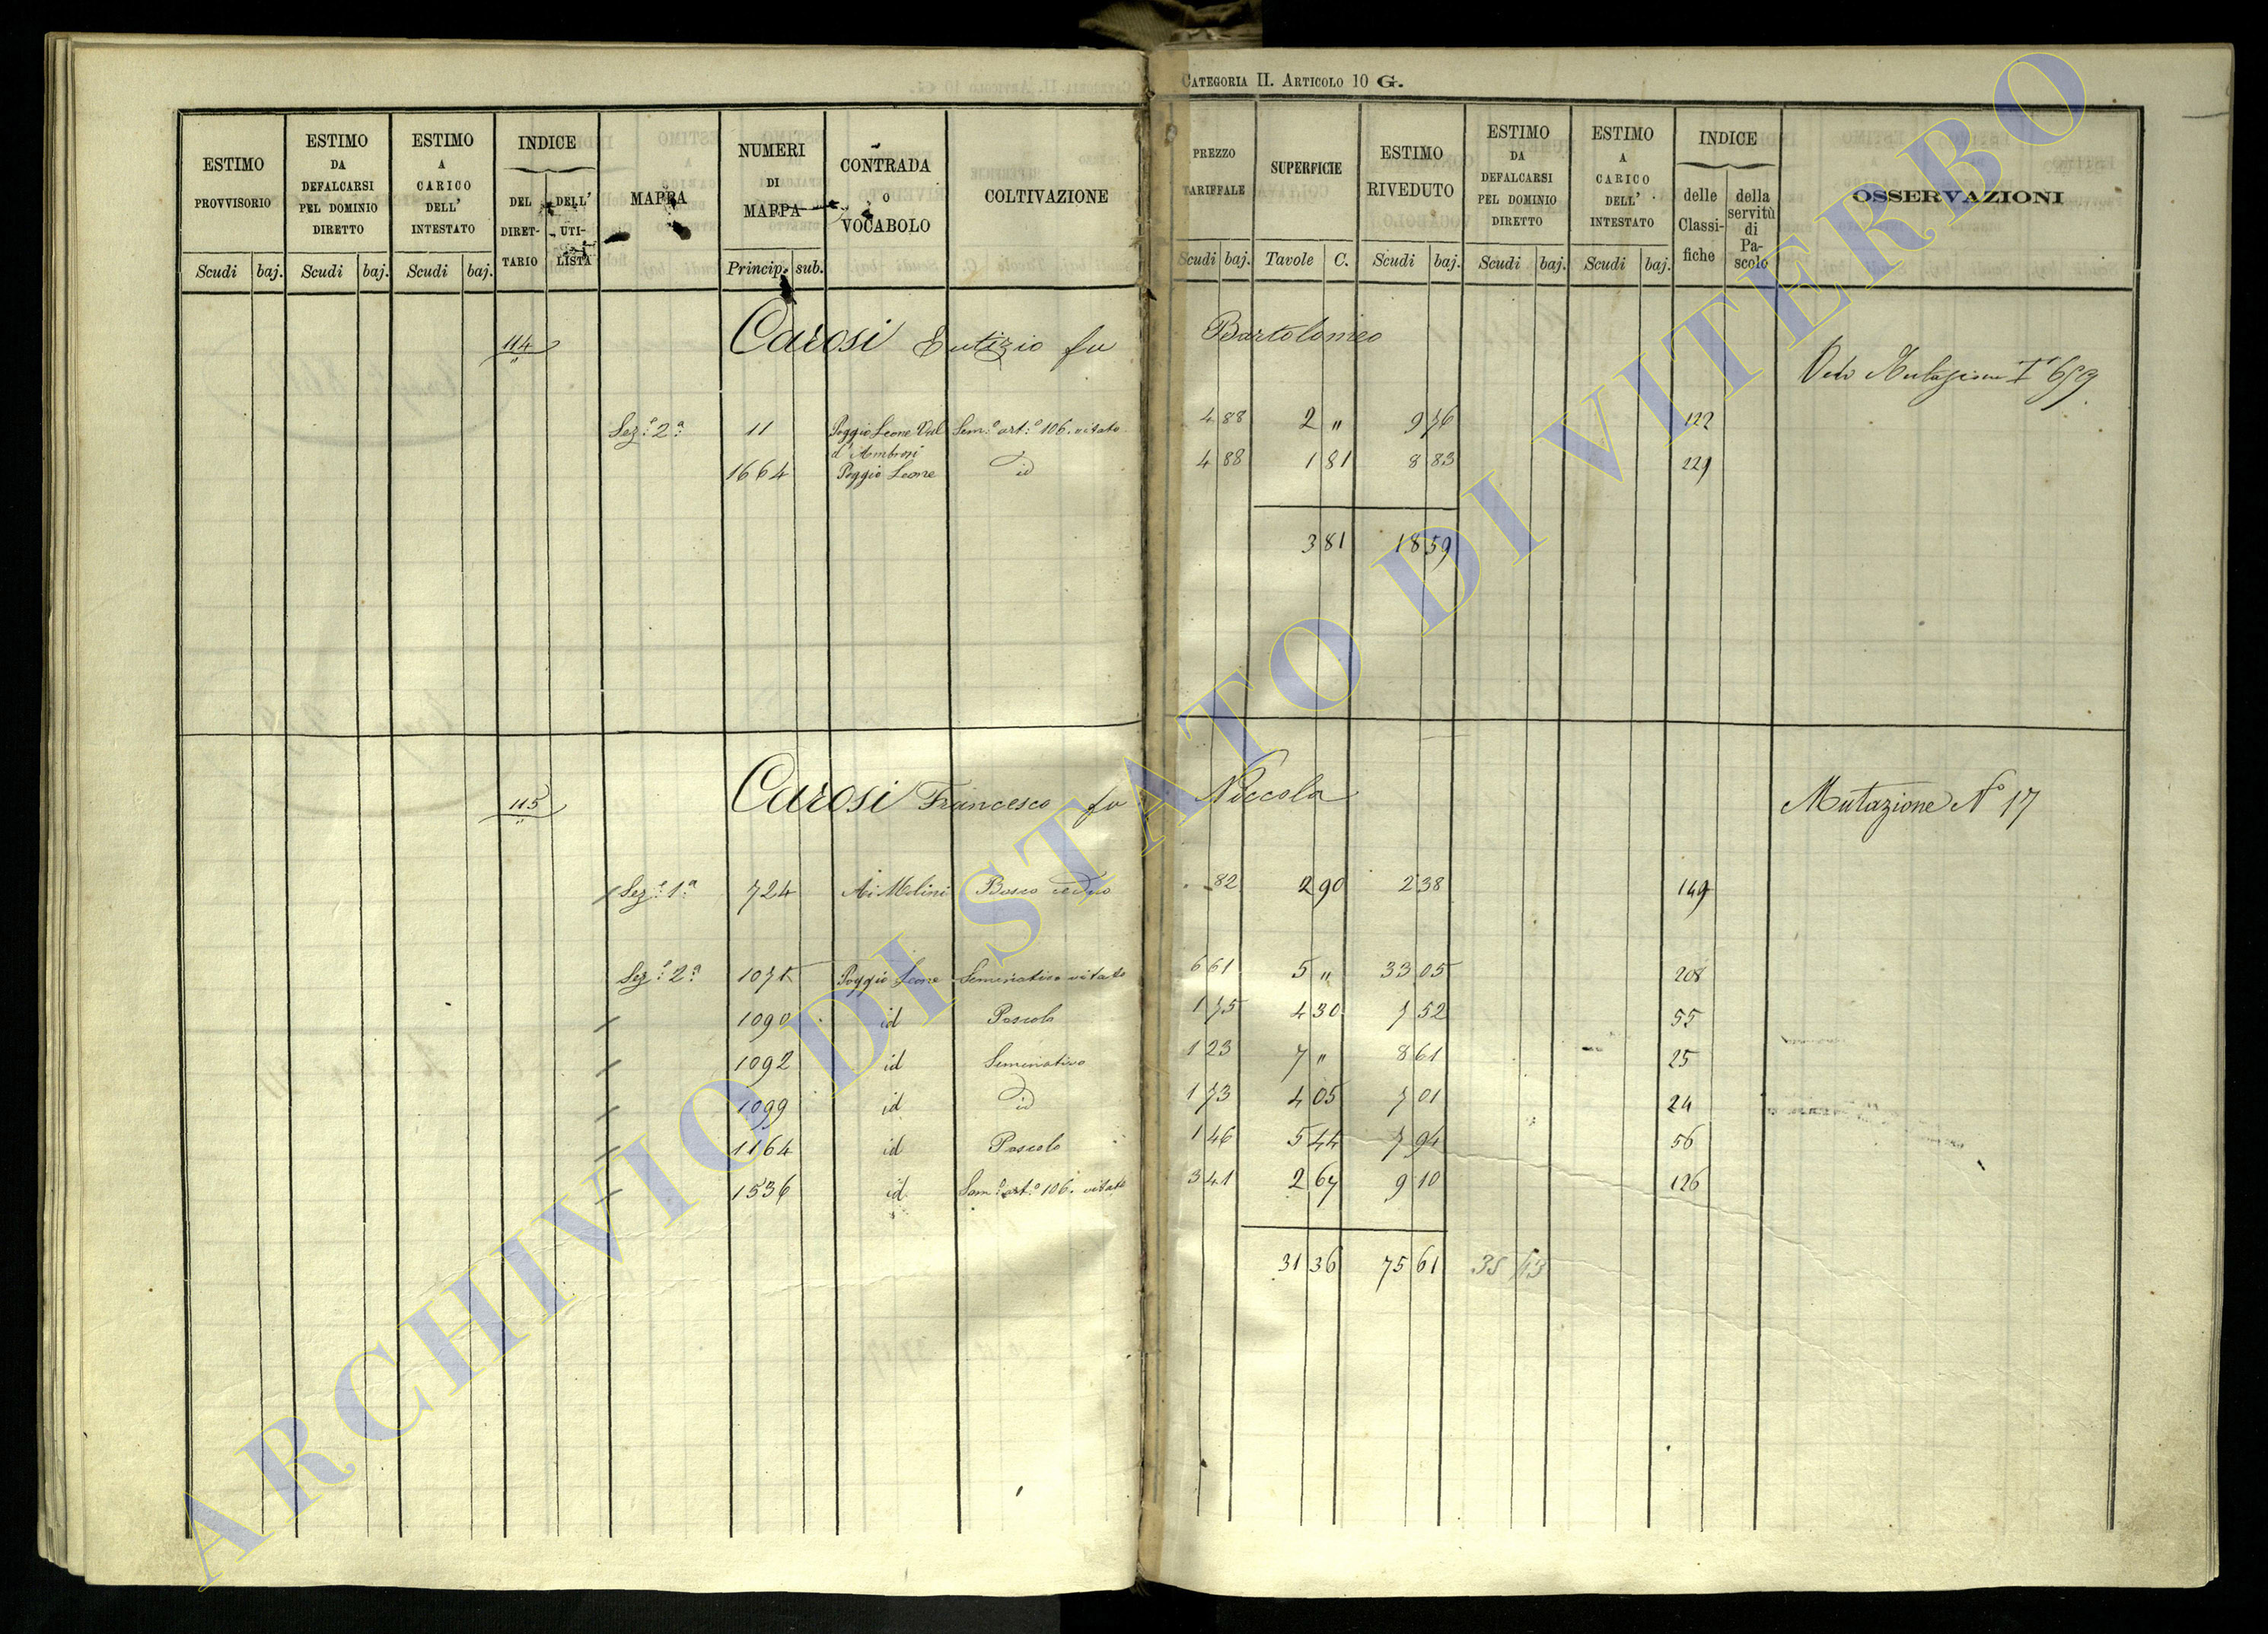 CATEGORIA II. ARTICOLO 10 G.
ESTIMO PROVVISORIO
ESTIMO DA DEFALCARSI PEL DOMINIO DIRETTO
ESTIMO A CARICO DELL' INTESTATO
INDICE
DEL DIRETTARIO
DELL' UTILISTA
MAPPA
NUMERI DI MAPPA
CONTRADA O VOCABOLO
COLTIVAZIONE
PREZZO TARIFFALE
SUPERFICIE
ESTIMO RIVEDUTO
ESTIMO DA DEFALCARSI PEL DOMINIO DIRETTO
ESTIMO A CARICO DELL' INTESTATO
INDICE
delle Classifiche
della servitù di Pascolo
OSSERVAZIONI
Scudi baj. Scudi baj. Scudi baj. Princip. sub. Scudi baj. Tavole C. Scudi baj. Scudi baj. Scudi baj.
114 Carosi Eutizio fu Bartolomeo
Vedi Mutazione 659
Sez.e 2a 11 Poggio Leone Val d'Ambrosi Sem.o art.o 106. vitato 4 88 2 " 9 76 122
1664 Poggio Leone id 4 88 1 81 8 83 229
3 81 18 59
115 Carosi Francesco fu Niccola Mutazione N° 17
Sez.e 1a 724 Ai Molini Bosco ceduo 82 2 90 2 38 149
Sez.e 2a 1071 Poggio Leone Seminativo vitato 6 61 5 " 33 05 208
1090 id Pascolo 1 75 4 30 7 52 55
1092 id Seminativo 1 23 7 " 8 61 25
1099 id id 1 73 4 05 7 01 24
1164 id Pascolo 1 46 5 44 7 94 56
1536 id Sem.o art.o 106. vitato 3 41 2 67 9 10 126
31 36 75 61
ARCHIVIO DI STATO DI VITERBO